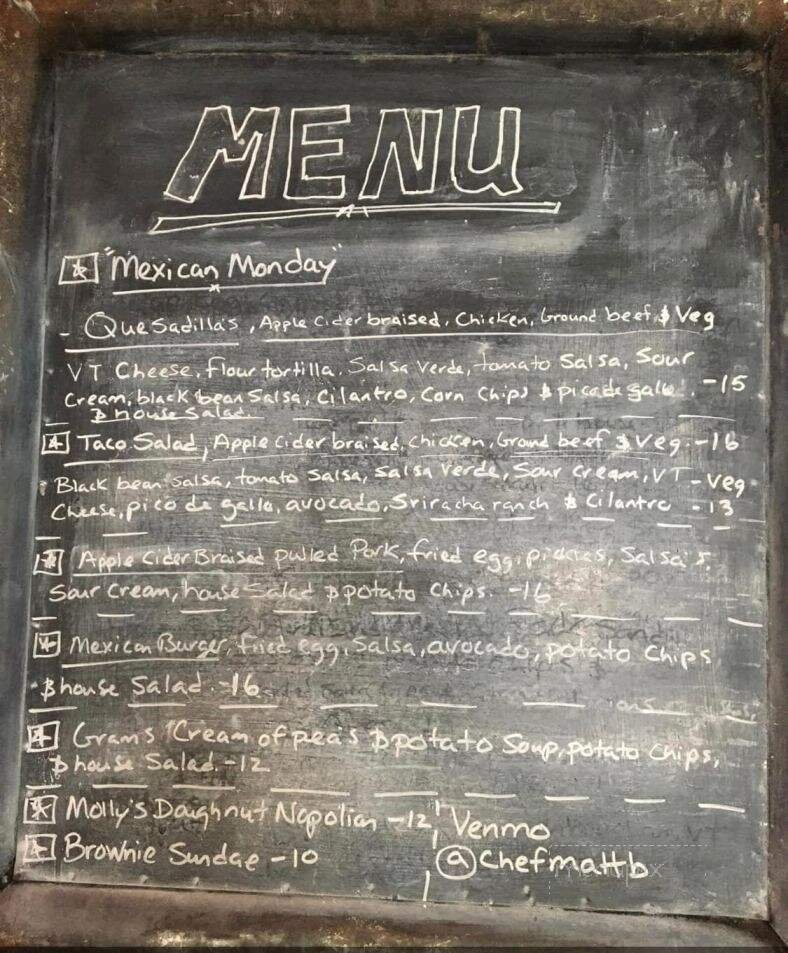 MENU
"Mexican Monday"
- Quesadillas, Apple Cider braised, Chicken, Ground beef, & Veg
VT Cheese, flour tortilla, Salsa Verde, tomato Salsa, Sour
Cream, black bean Salsa, Cilantro, Corn Chips & pico de gallo. -15
& house Salad.
Taco Salad, Apple Cider braised, Chicken, Ground beef & Veg. -16
Black bean Salsa, tomato Salsa, Salsa Verde, Sour Cream, VT - Veg
Cheese, pico de gallo, avocado, Sriracha ranch & Cilantro - 13
Apple Cider Braised pulled Pork, fried egg, pickles, Salsa's,
Sour Cream, house Salad & potato Chips. -16
Mexican Burger, fried egg, Salsa, avocado, potato Chips
& house Salad. -16
Gram's Cream of pea's & potato Soup, potato Chips,
& house Salad -12
Molly's Doughnut Napolian -12
Brownie Sundae -10
Venmo
@Chefmattb